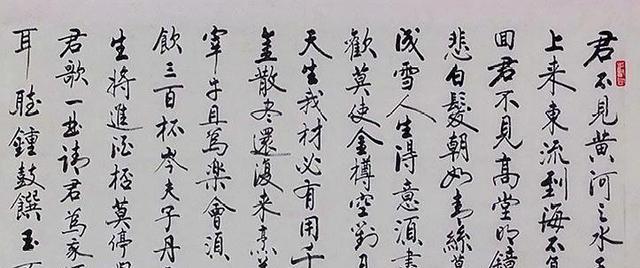 君不見黄河之水
上来東流到海不
回君不見高堂明鏡
悲白髮朝如青絲
成雪人生得意須盡
歡莫使金樽空對月
天生我材必有用千
金散尽還復来烹
宰牛且為樂會須
飲三百杯岑夫子丹
生將進酒杯莫停
君歌一曲請君為我
耳聴鍾鼓饌玉